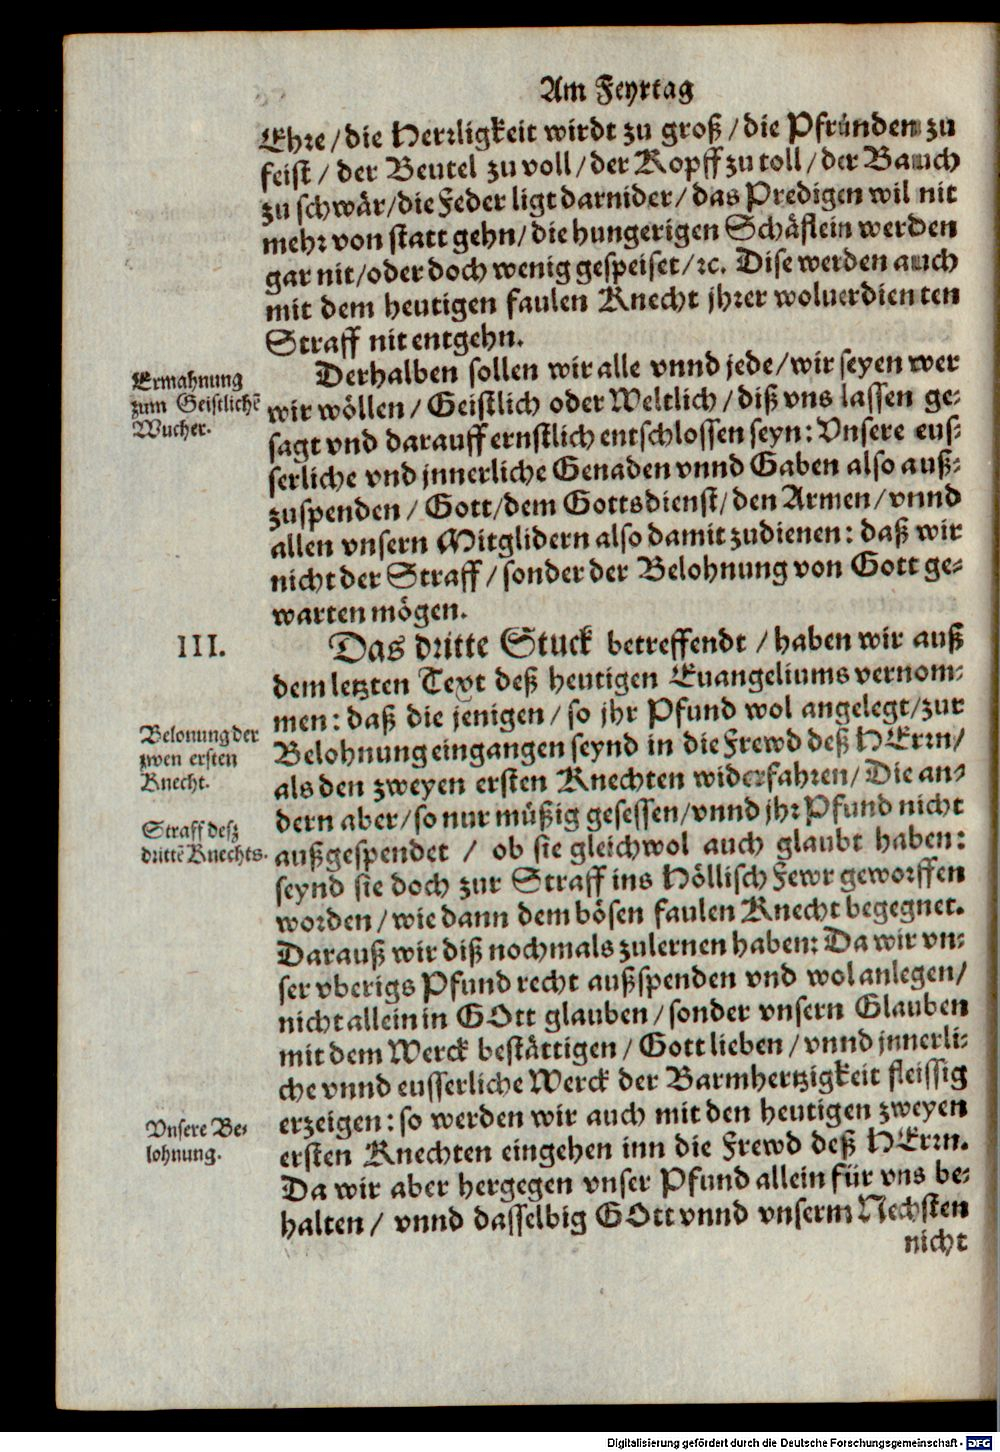 Am Feyrtag
Ehre / die Herrligkeit wirdt zu groß / die Pfründen zu
feist / der Beutel zu voll / der Kopff zu toll / der Bauch
zu schwär / die Feder ligt darnider / das Predigen wil nit
mehr von statt gehn / die hungerigen Schäflein werden
gar nit / oder doch wenig gespeiset / ꝛc. Dise werden auch
mit dem heutigen faulen Knecht jhrer woluerdienten
Straff nit entgehn.
Ermahnung
zum Geistlichē
Wucher.
Derhalben sollen wir alle vnnd jede / wir seyen wer
wir wöllen / Geistlich oder Weltlich / diß vns lassen ge-
sagt vnd darauff ernstlich entschlossen seyn: Vnsere eus-
serliche vnd jnnerliche Genaden vnnd Gaben also auß-
zuspenden / Gott / dem Gottsdienst / den Armen / vnnd
allen vnsern Mitglidern also damit zudienen: daß wir
nicht der Straff / sonder der Belohnung von Gott ge-
warten mögen.
III.
Das dritte Stuck betreffendt / haben wir auß
dem letzten Text deß heutigen Euangeliums vernom-
men: daß die jenigen / so jhr Pfund wol angelegt / zur
Belonung der
zwen ersten
Knecht.
Belohnung eingangen seynd in die Frewd deß HErrn /
als den zweyen ersten Knechten widerfahren / Die an-
dern aber / so nur müßig gesessen / vnnd jhr Pfund nicht
Straff desz
drittē Knechts.
außgespendet / ob sie gleichwol auch glaubt haben:
seynd sie doch zur Straff ins Höllisch Fewr geworffen
worden / wie dann dem bösen faulen Knecht begegnet.
Darauß wir diß nochmals zulernen haben: Da wir vn-
ser vberigs Pfund recht außspenden vnd wol anlegen /
nicht allein in GOtt glauben / sonder vnsern Glauben
mit dem Werck bestättigen / Gott lieben / vnnd jnnerli-
che vnnd eusserliche Werck der Barmhertzigkeit fleissig
Vnsere Be-
lohnung.
erzeigen: so werden wir auch mit den heutigen zweyen
ersten Knechten eingehen inn die Frewd deß HErrn.
Da wir aber hergegen vnser Pfund allein für vns be-
halten / vnnd dasselbig GOtt vnnd vnserm Nechsten
nicht
Digitalisierung gefördert durch die Deutsche Forschungsgemeinschaft - DFG